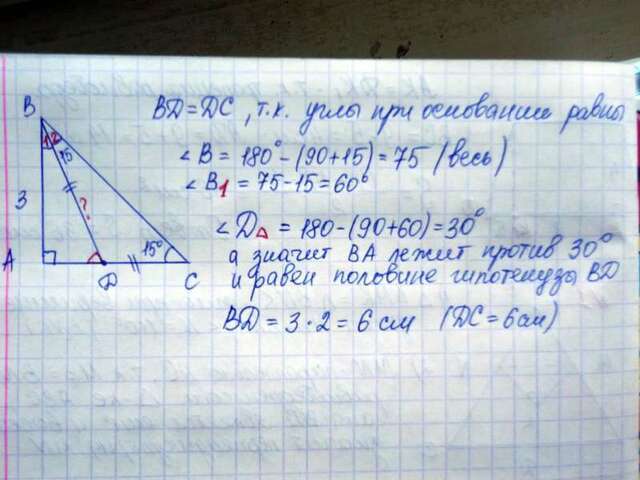 BD=DC, т.к. углы при основании равны
∠B = 180°-(90+15)=75 (весь)
∠B1 = 75-15=60°
∠D△ = 180-(90+60)=30°
а значит BA лежит против 30°
и равен половине гипотенузы BD
BD = 3·2 = 6 см (DC=6см)
B
1 2
15
3
?
A
15°
D
C